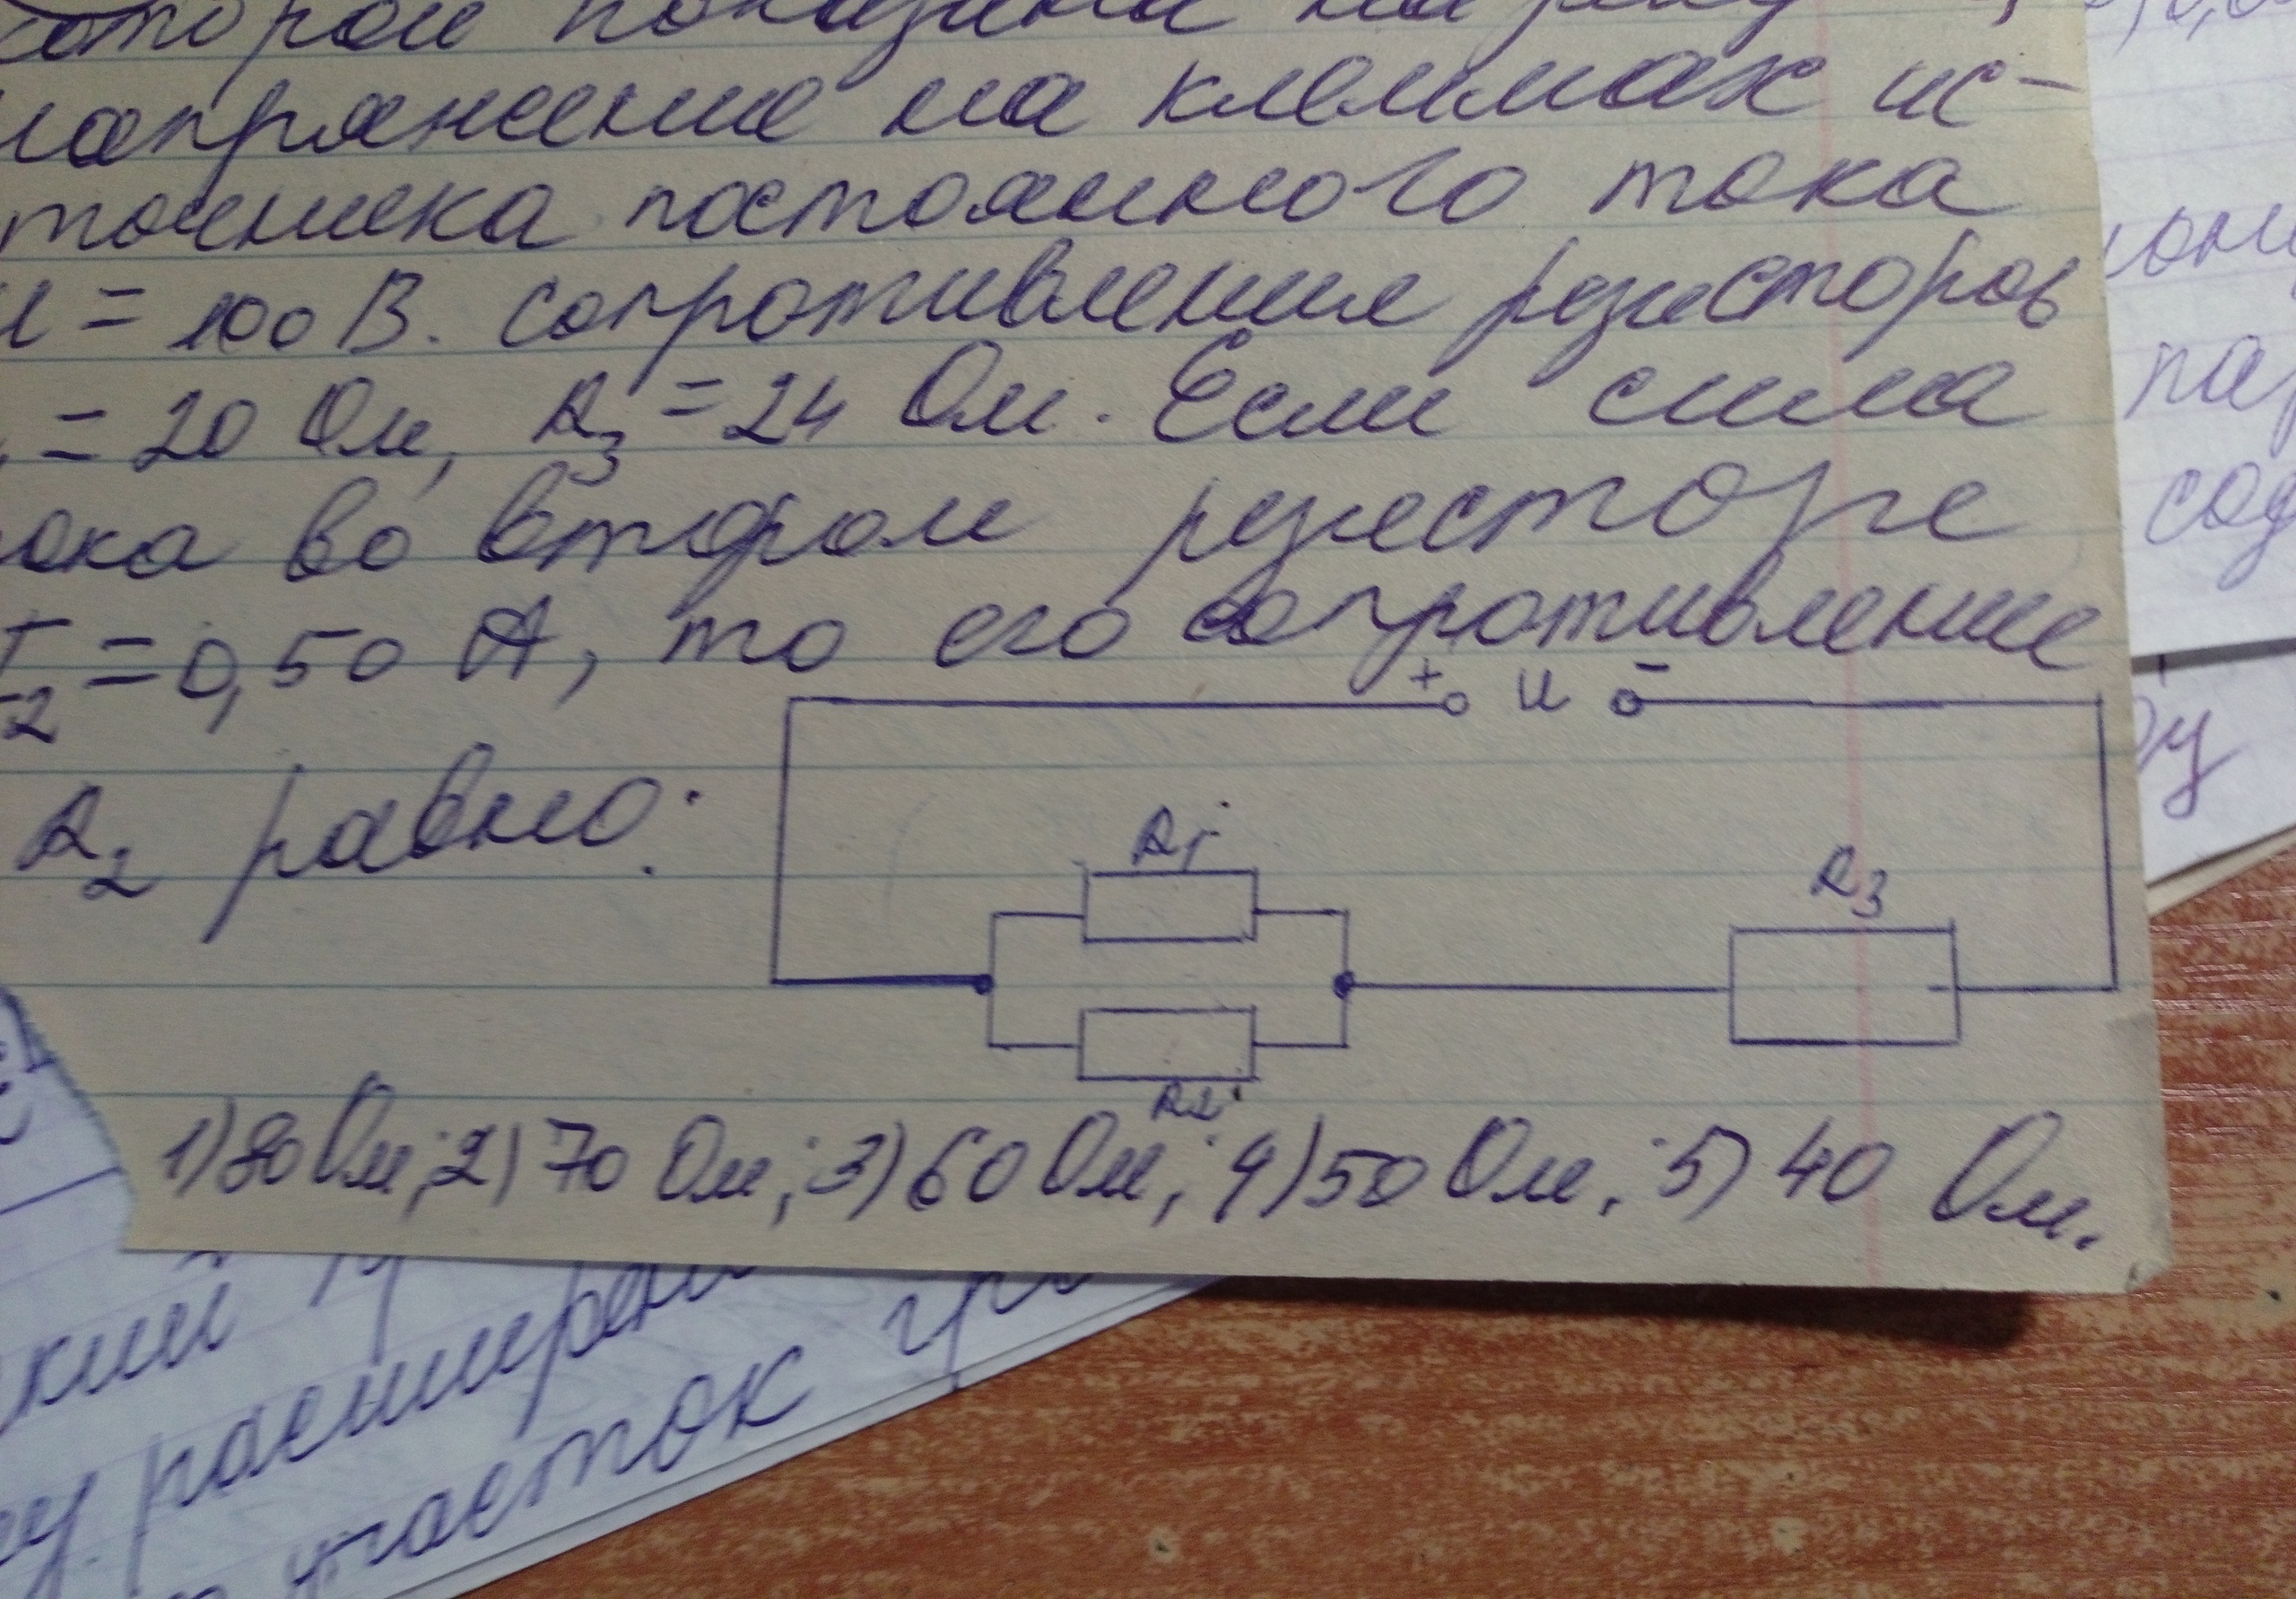 которой показана на рису
напряжение на клеммах ис-
точника постоянного тока
U = 100 В. сопротивления резисторов
= 20 Ом, R3 = 24 Ом. Если сила
тока во втором резисторе
I2 = 0,50 А, то его сопротивление
R2 равно:
+ U -
R1
R3
R2
1) 80 Ом; 2) 70 Ом; 3) 60 Ом; 4) 50 Ом; 5) 40 Ом.
кий
расширен
участок